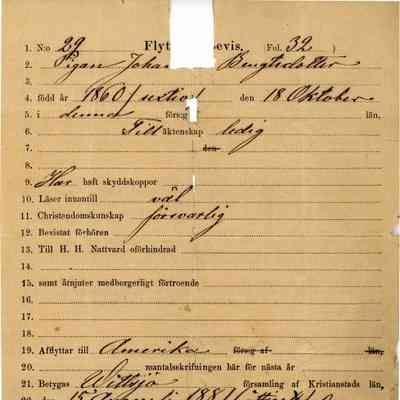 1. N:o 29 Flytt evis. (Fol. 32 )
2. Pigan Joha Bengtsdotter
3.
4. född år 1860 (sextio) den 18 Oktober
5. i denna förs:g län,
6. Till äktenskap ledig
7. den
8.
9. Har haft skyddskoppor
10. Läser innantill väl
11. Christendomskunskap försvarlig
12. Bevistat förhören
13. Till H. H. Nattvard oförhindrad
14.
15. samt åtnjuter medborgerligt förtroende
16.
17.
18.
19. Afflyttar till Amerika län,
20. mantalsskrifningen här för nästa år
21. Betygas Wittsjö församling af Kristianstads län,
22. den 15 1881